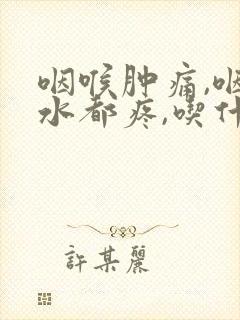 咽喉肿痛,咽
水都疼,喫什
許某麗